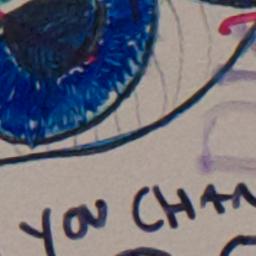 YOU CHAN